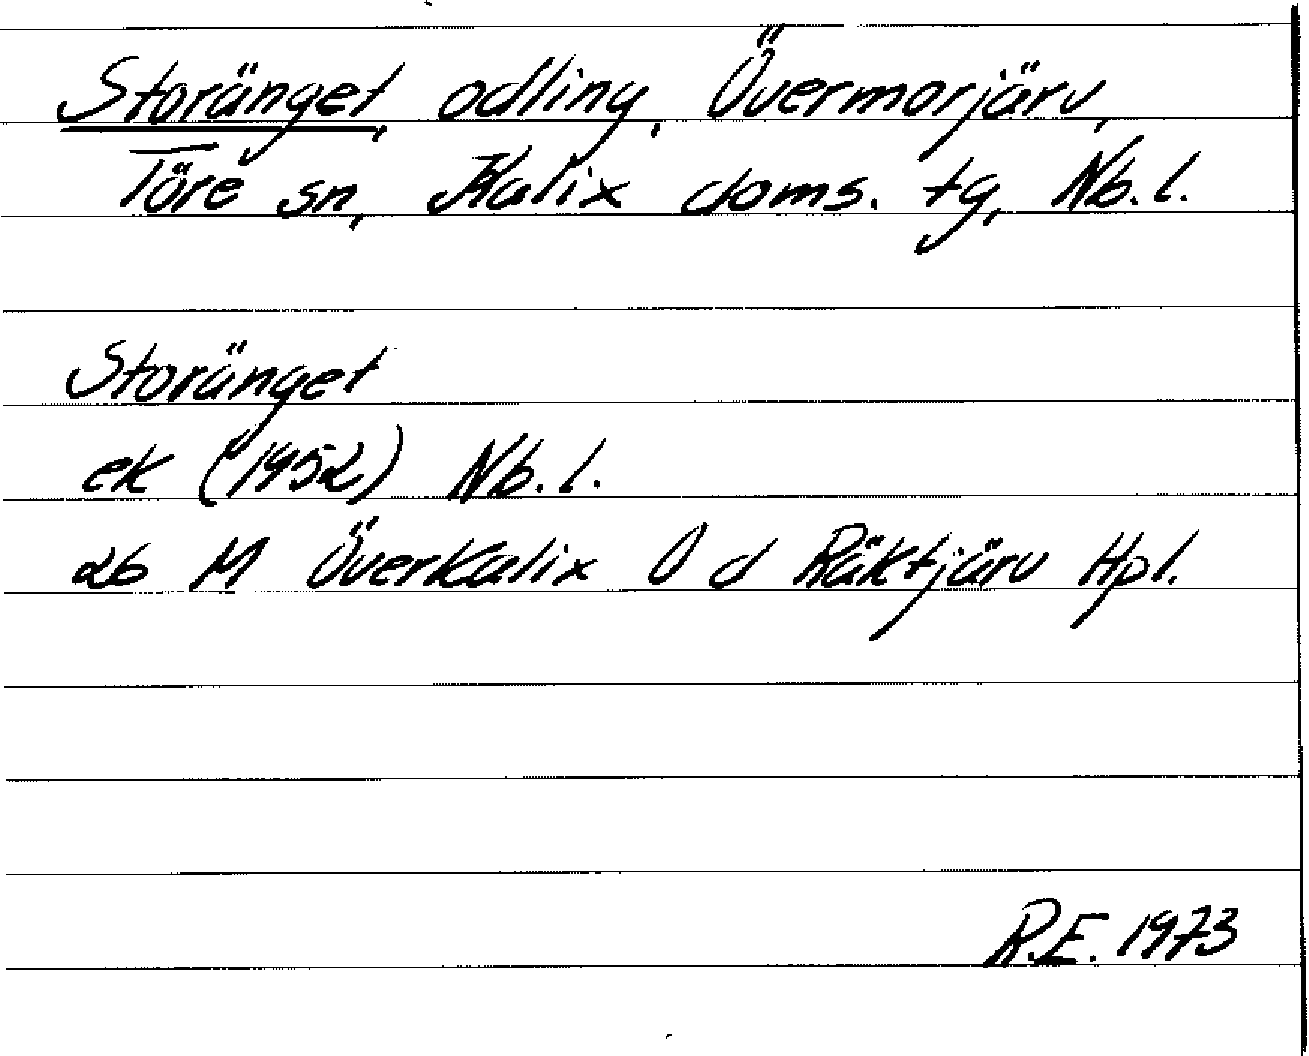 Storänget, odling, Övermorjärv,
Töre sn, Kalix doms. tg, Nb. l.
Storänget
ek (1952) Nb. l.
26 M Överkalix O d Räktjärv Hpl.
R.E. 1973